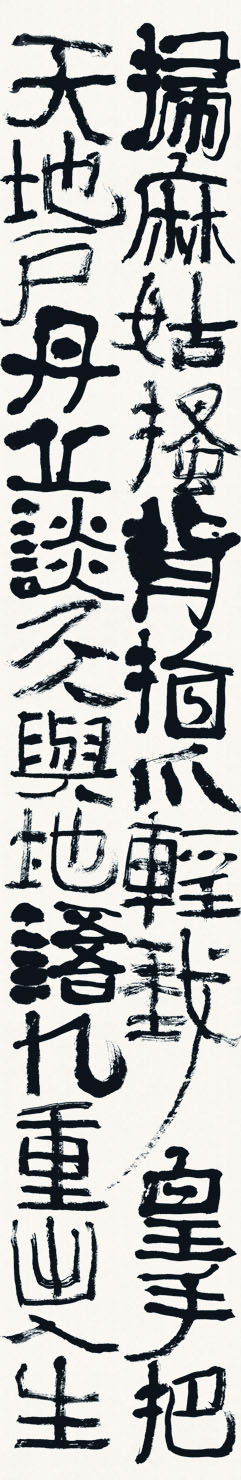 掃麻姑搔背指爪輕我皇手把
天地戶丹丘談天與地語九重出入生